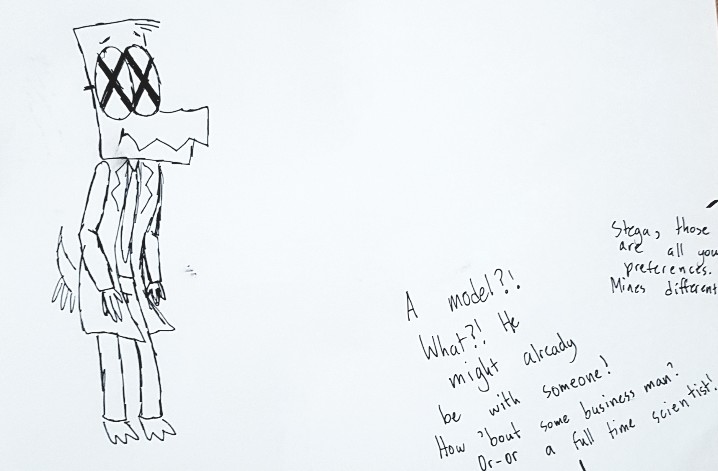 Stega, those
are all you
preferences.
Mines different
A model?!
What?! He
might already
be with someone!
How 'bout some business man?
Or-or a full time scientist!